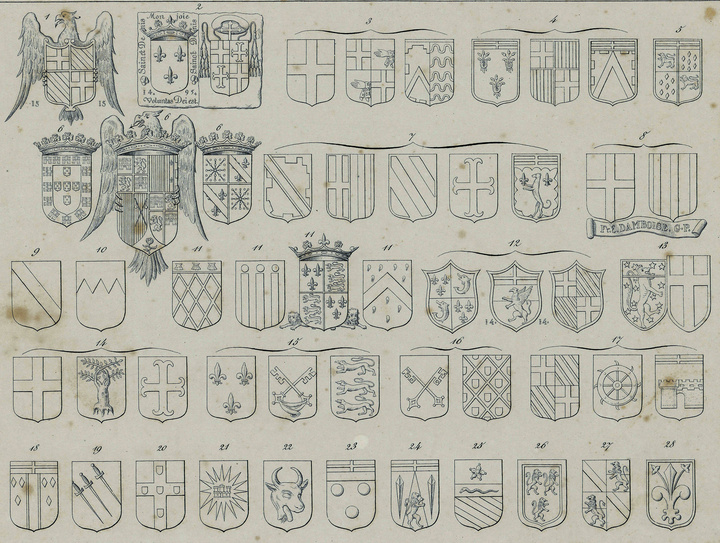 1
2
3
4
5
Mon joie
Sainct Denis
Sainct Denis
15 15
14 95
Voluntas Dei est
6
6
6
7
8
Fr. E. DAMBOISE. G.P.
9
10
11
11
11
11
12
13
14 14
14
15
16
17
18
19
20
21
22
23
24
25
26
27
28